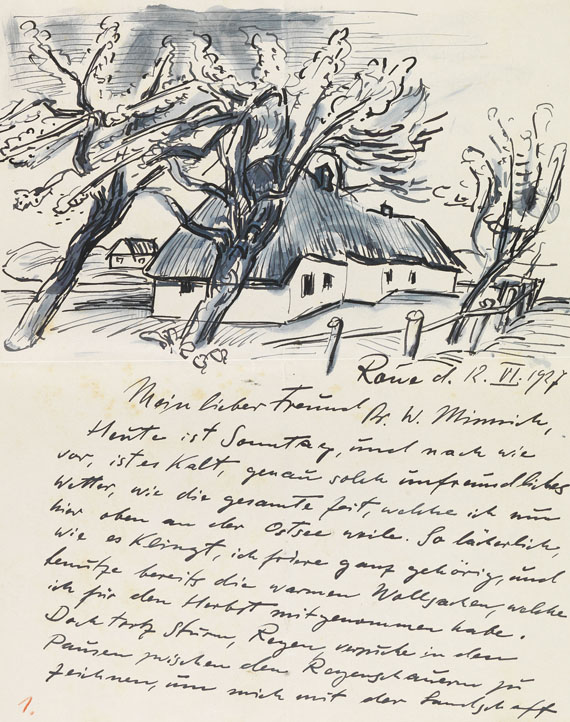 Rowe d. 12. VI. 1927
Mein lieber Freund Dr. W. Minnich,
Heute ist Sonntag, und nach wie
vor, ist es Kalt, genau solch unfreundliches
Wetter, wie die gesamte Zeit, welche ich nun
hier oben an der Ostsee weile. So lächerlich,
wie es Klingt, ich friere ganz gehörig, und
benutze bereits die warmen Wollsachen, welche
ich für den Herbst mitgenommen habe.
Doch trotz Sturm, Regen, versuche in den
Pausen zwischen den Regenschauern zu
zeichnen, um mich mit der Landschaft
1.